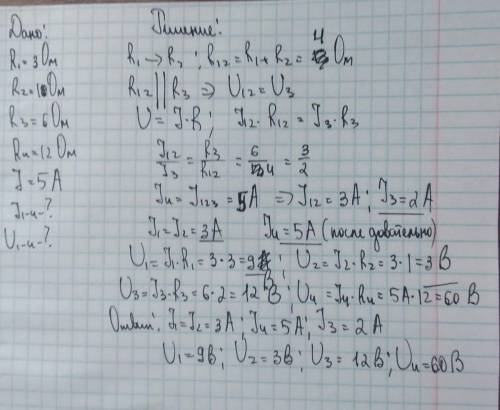 Дано:
R₁=3Ом
R₂=1Ом
R₃=6Ом
R₄=12Ом
I=5А
I₁₋₄-?
U₁₋₄-?
Решение:
R₁→R₂; R₁₂=R₁+R₂=4Ом
R₁₂||R₃ ⇒ U₁₂=U₃
U=I·R; I₁₂·R₁₂=I₃·R₃
I₁₂/I₃=R₃/R₁₂=6/4=3/2
I₄=I₁₂₃=5А ⇒I₁₂=3А; I₃=2А
I₁=I₂=3А I₄=5А (последовательно)
U₁=I₁·R₁=3·3=9В; U₂=I₂·R₂=3·1=3В
U₃=I₃·R₃=6·2=12В; U₄=I₄·R₄=5А·12=60В
Ответ: I₁=I₂=3А; I₄=5А; I₃=2А
U₁=9В; U₂=3В; U₃=12В; U₄=60В